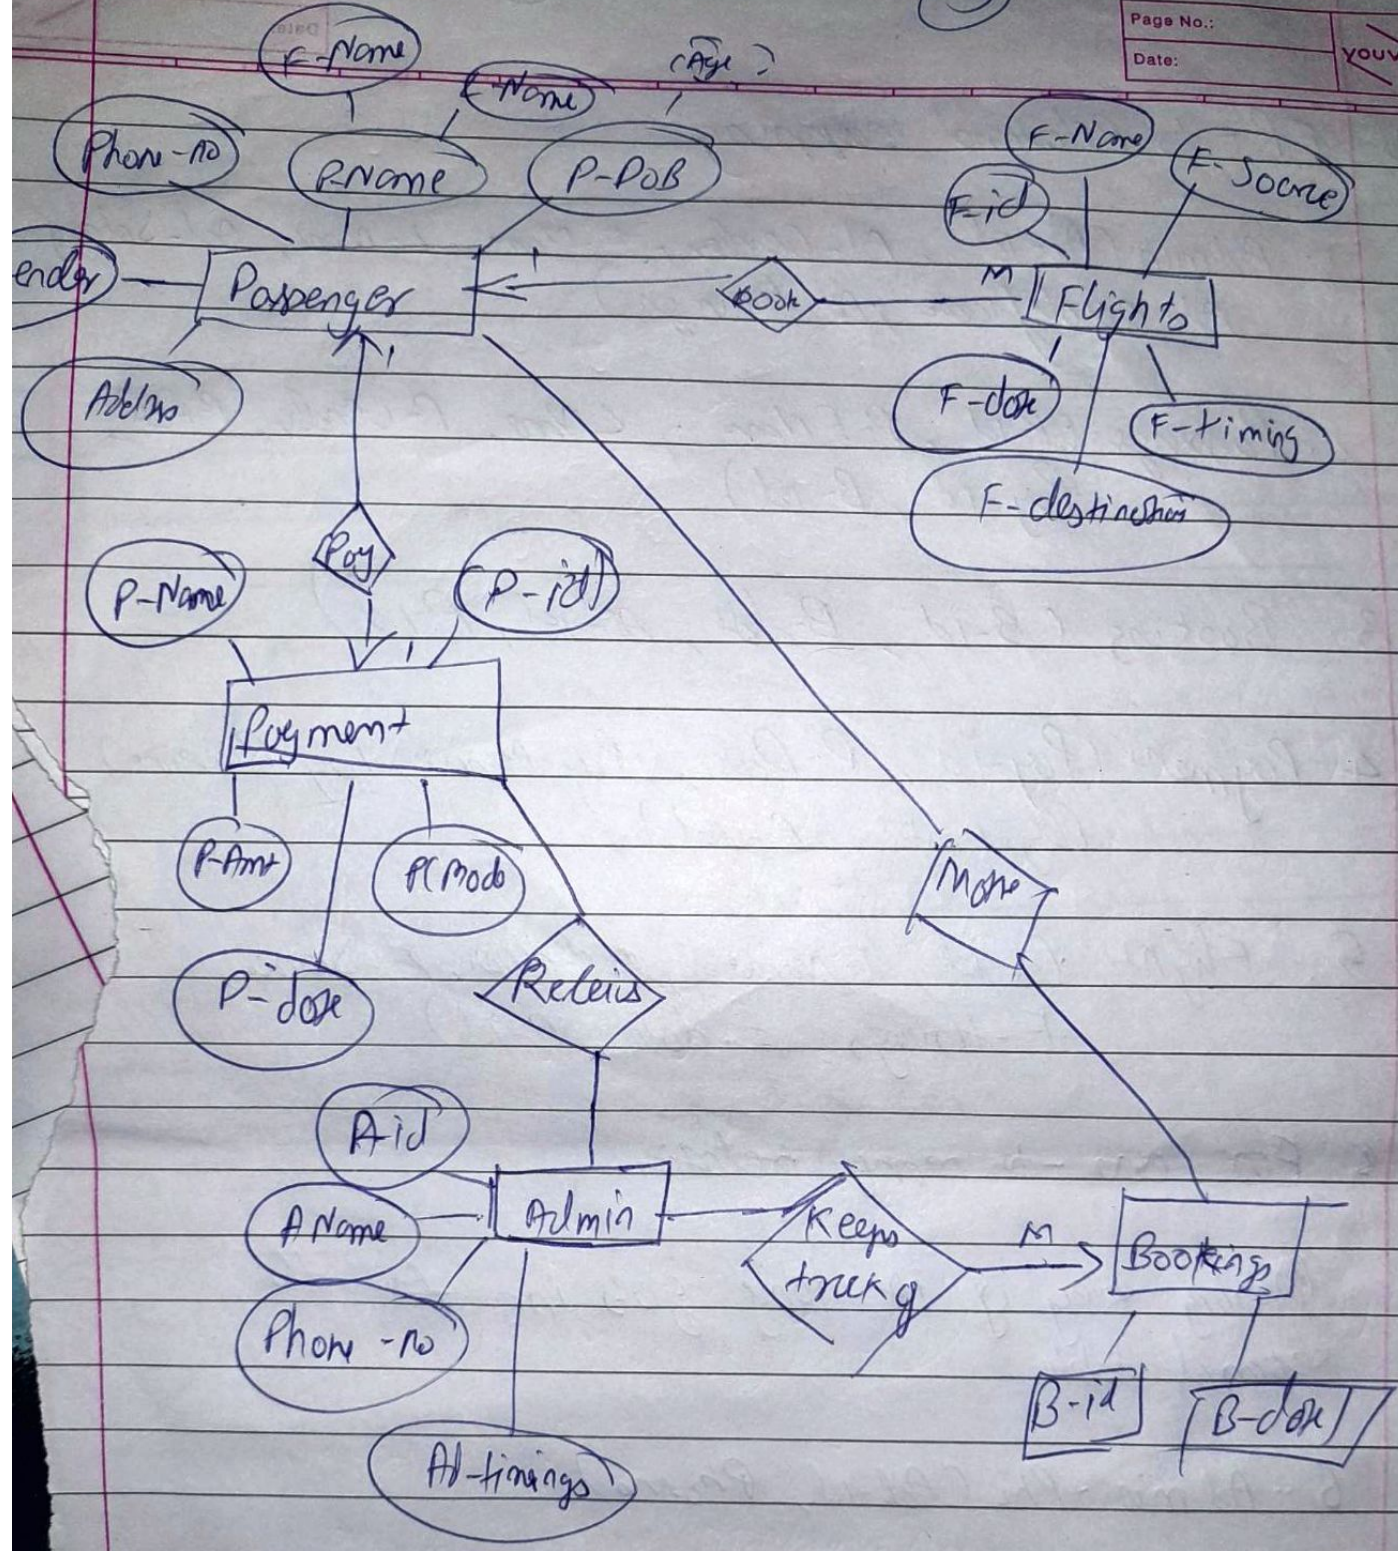 Page No.:
Date:
YOUV
F-Name
L-Name
Age
Phone-no
P-Name
P-DOB
F-Name
F-id
F-Source
ender
Passenger
1
Book
M
Flights
Address
1
F-date
F-timing
F-destination
Pay
P-Name
P-id
1
Payment
P-Amt
P(Mode
P-date
Make
Receives
A-id
A Name
Admin
Keeps
track of
M
Bookings
Phone-no
B-id
B-date
Ad-timings